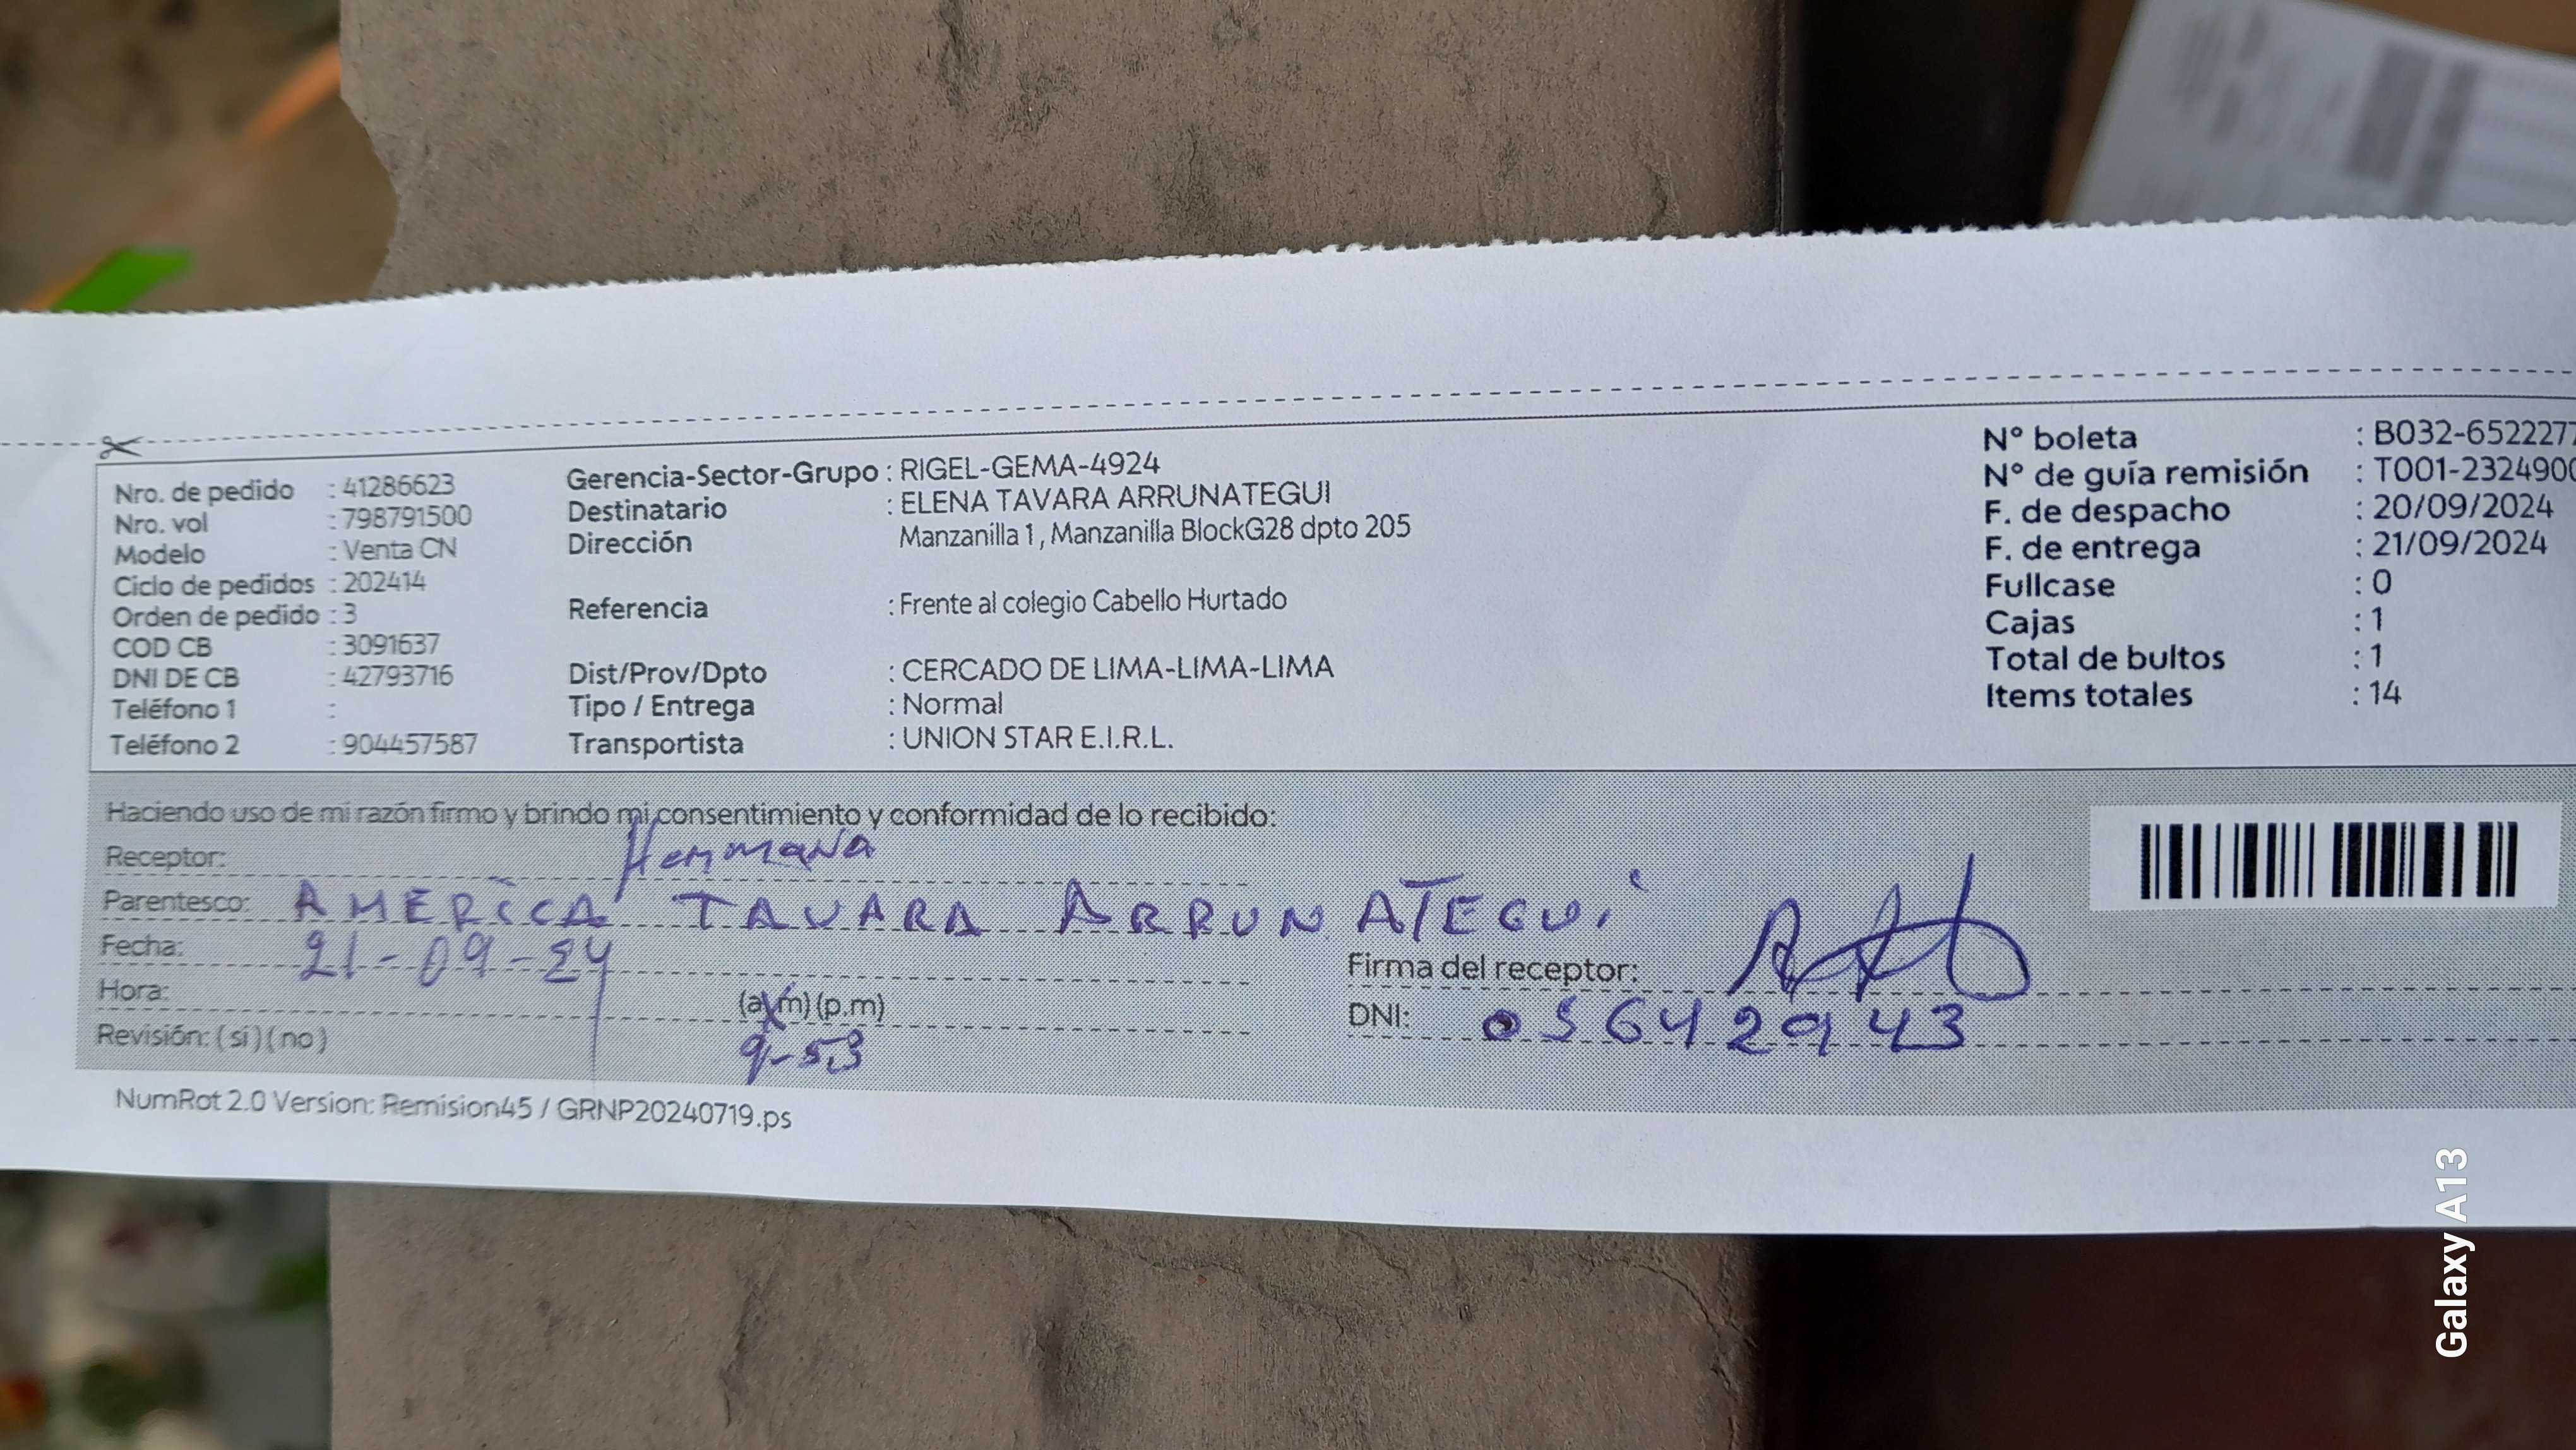 Nro. de pedido : 41286623
Nro. vol : 798791500
Modelo : Venta CN
Ciclo de pedidos : 202414
Orden de pedido : 3
COD CB : 3091637
DNI DE CB : 42793716
Teléfono 1 :
Teléfono 2 : 904457587
Gerencia-Sector-Grupo : RIGEL-GEMA-4924
Destinatario : ELENA TAVARA ARRUNATEGUI
Dirección Manzanilla 1, Manzanilla BlockG28 dpto 205
Referencia : Frente al colegio Cabello Hurtado
Dist/Prov/Dpto : CERCADO DE LIMA-LIMA-LIMA
Tipo / Entrega : Normal
Transportista : UNION STAR E.I.R.L.
N° boleta : B032-6522277
N° de guía remisión : T001-2324900
F. de despacho : 20/09/2024
F. de entrega : 21/09/2024
Fullcase : 0
Cajas : 1
Total de bultos : 1
Items totales : 14
Haciendo uso de mi razón firmo y brindo mi consentimiento y conformidad de lo recibido:
Receptor: Hermana
Parentesco: AMERICA TAVARA ARRUNATEGUI
Fecha: 21-09-24
Hora: (a.m) (p.m)
9-53
Revisión: (si) (no)
Firma del receptor:
DNI: 05642943
NumRot 2.0 Version: Remision45 / GRNP20240719.ps
Galaxy A13